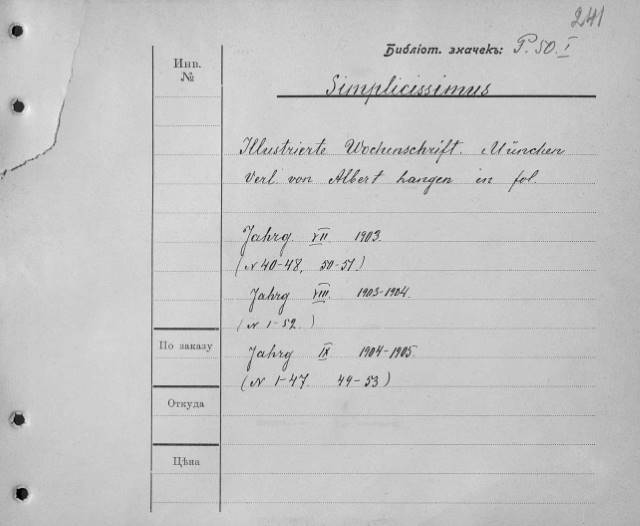 241
Библіот. значекъ: P. 50. I
Инв.
№
Simplicissimus
Illustrierte Wochenschrift. München
Verl. von Albert Langen in fol.
Jahrg. VII 1903.
(N 40-48, 50-51.)
Jahrg VIII. 1903-1904.
(N 1-52.)
По заказу
Jahrg IX 1904-1905.
(N 1-47. 49-53)
Откуда
Цѣна